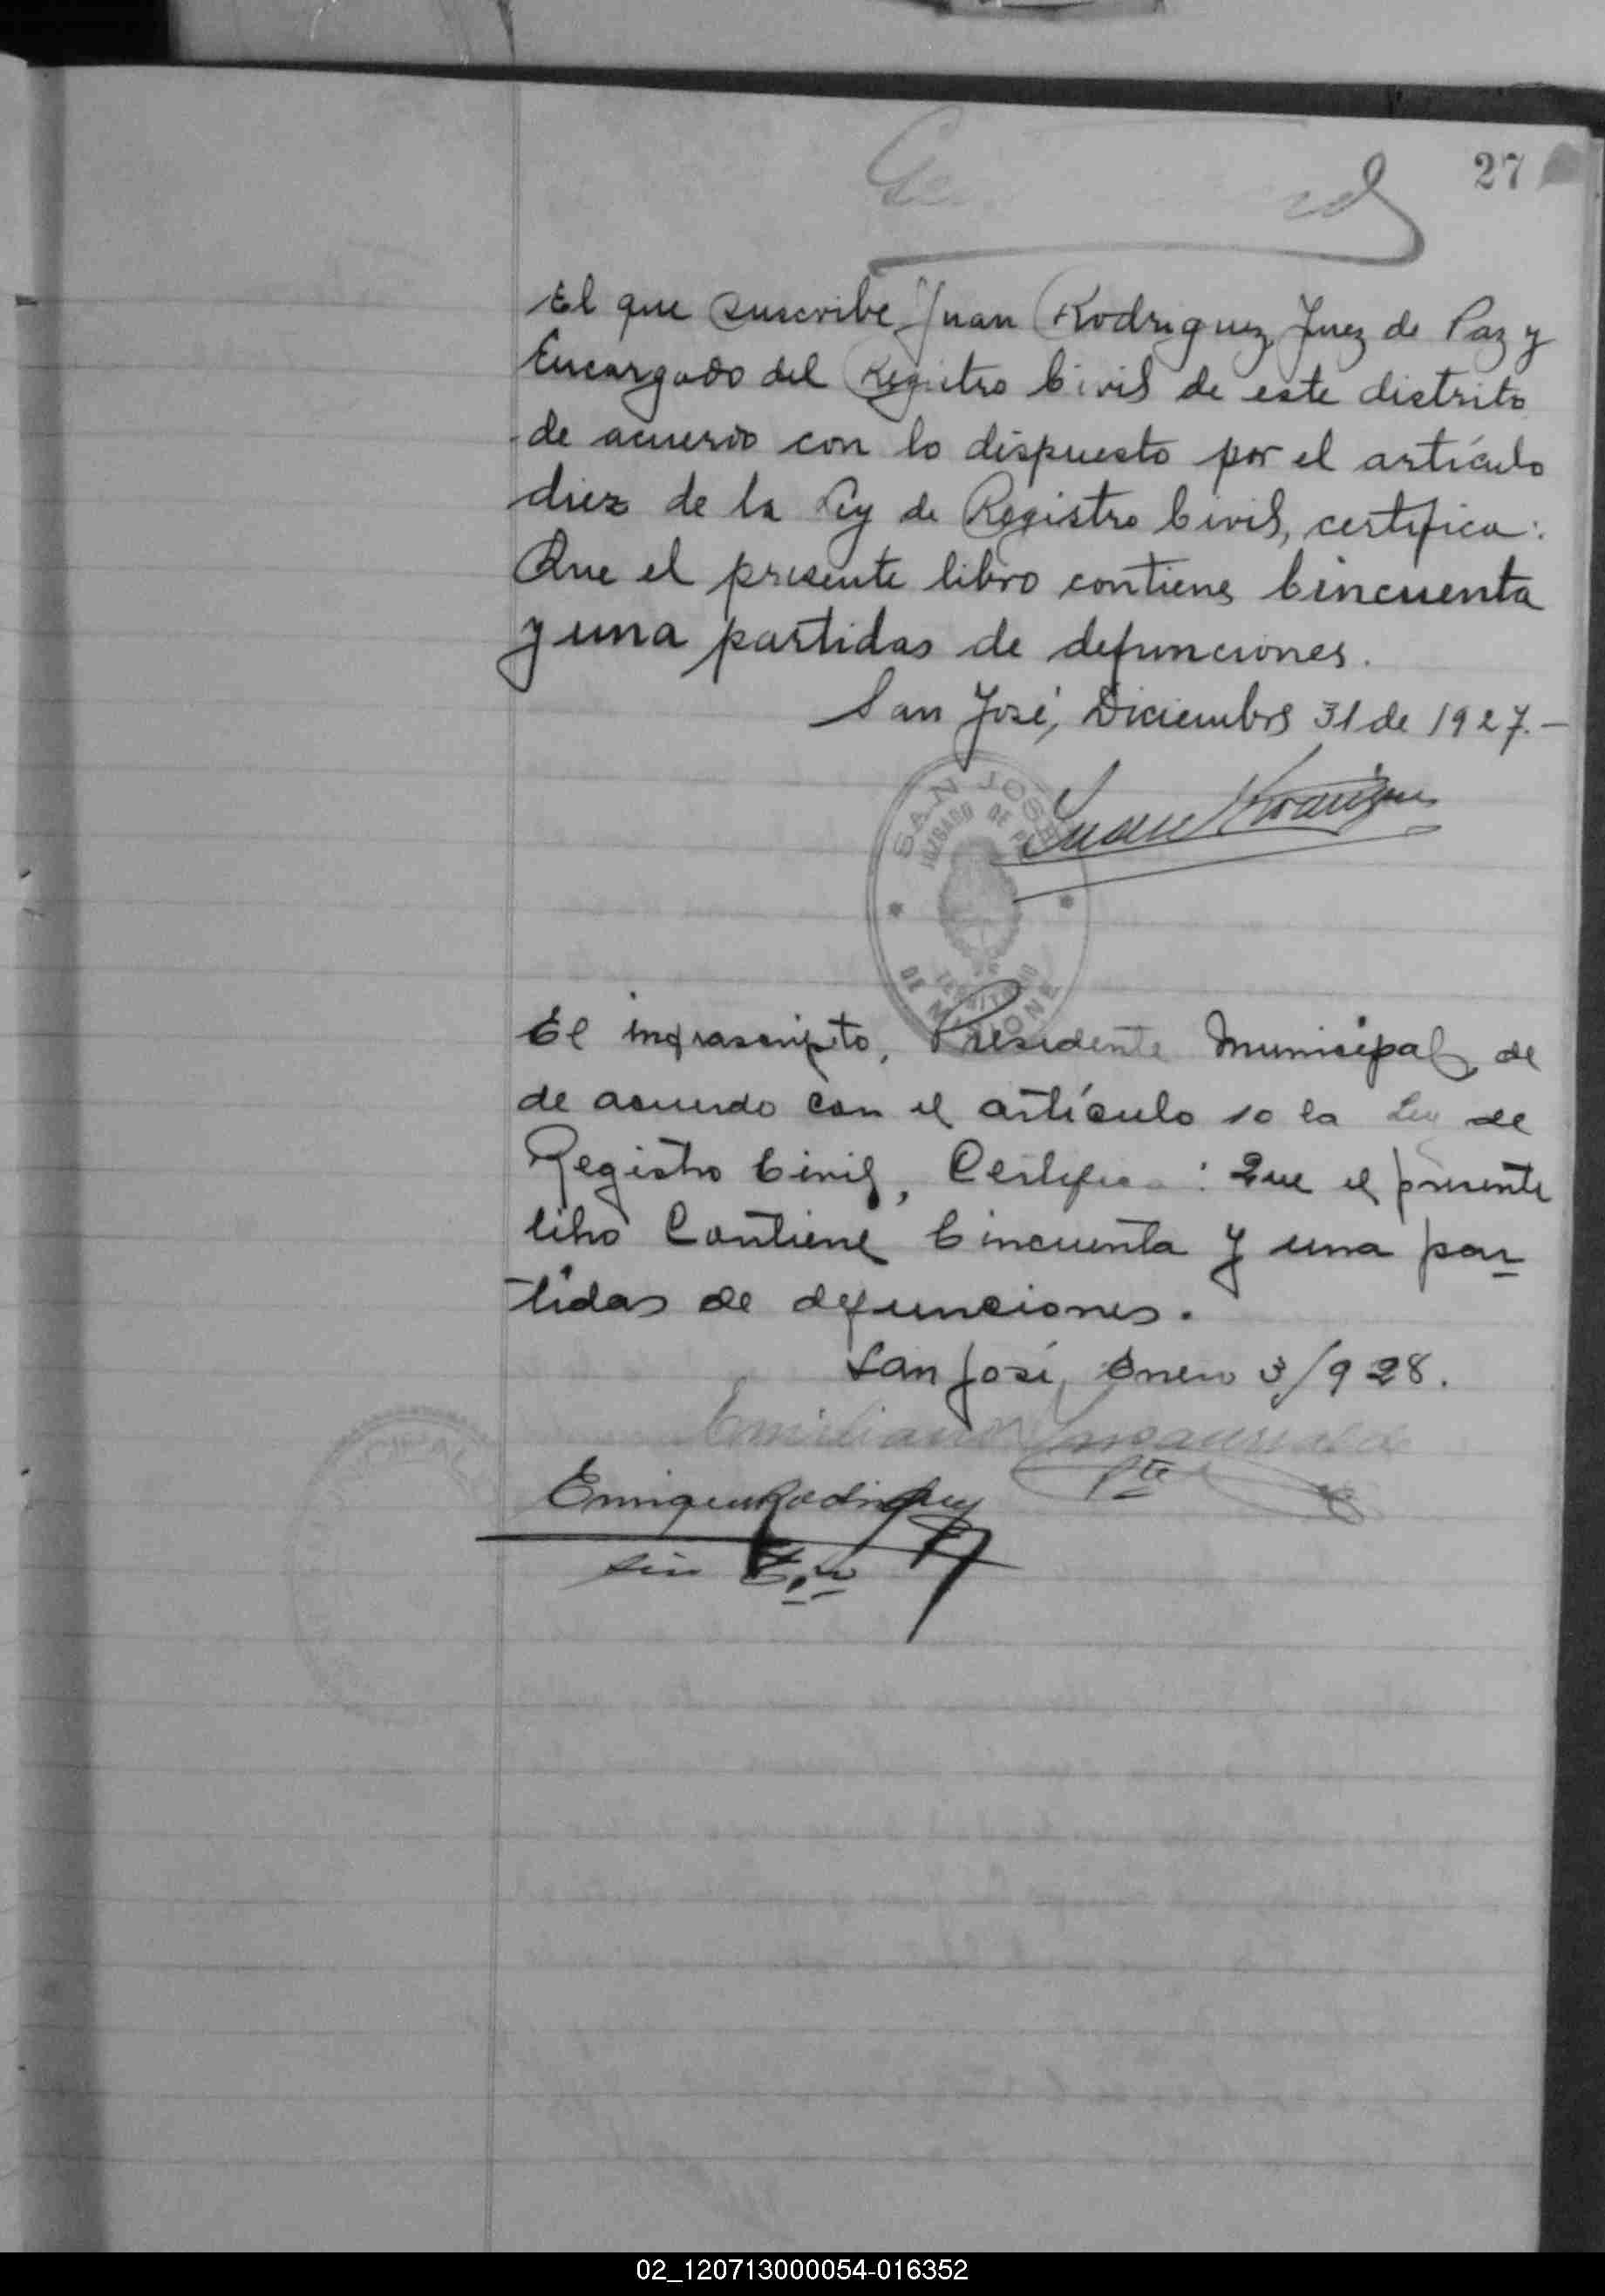 27
El que suscribe, Juan Rodriguez, Juez de Paz y
Encargado del Registro Civil de este distrito
de acuerdo con lo dispuesto por el artículo
diez de la Ley de Registro Civil, certifica:
Que el presente libro contiene Cincuenta
y una partidas de defunciones.
San José, Diciembre 31 de 1927.-
Juan Rodriguez
SAN JOSE
JUZGADO DE PAZ
TERRITORIO
DE MISIONES
El infrascripto, Presidente Municipal, de
de acuerdo con el artículo 10 la Ley de
Registro Civil, Certifica: Que el presente
libro Contiene Cincuenta y una par-
tidas de defunciones.
San José, Enero 3/928.
Emiliano
Pte
Enrique Rodriguez
CIPAL
02_120713000054-016352